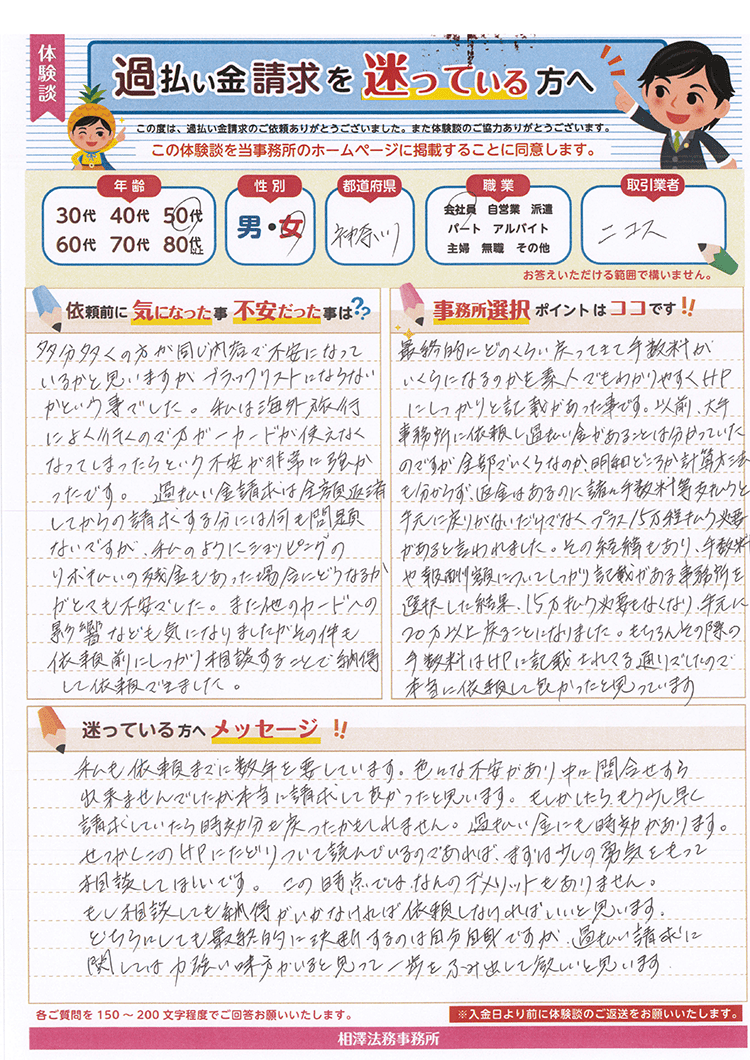 体験談
過払い金請求を迷っている方へ
この度は、過払い金請求のご依頼ありがとうございました。また体験談のご協力ありがとうございます。
この体験談を当事務所のホームページに掲載することに同意します。
年齢
30代 40代 50代
60代 70代 80代以上
性別
男・女
都道府県
神奈川
職業
会社員 自営業 派遣
パート アルバイト
主婦 無職 その他
取引業者
ニコス
お答えいただける範囲で構いません。
依頼前に気になった事 不安だった事は??
多分多くの方が同じ内容で不安になって
いるかと思いますが ブラックリストにならない
かという事でした。 私は海外旅行
によく行くので万が一カードが使えなく
なってしまったらという不安が非常に強か
ったです。 過払い金請求は全額返済
してからの請求する分には何も問題
ないですが、私のようにショッピングの
リボ払いの残金もあった場合にどうなるか
がとても不安でした。また他のカードへの
影響なども気になりましたがその件も
依頼前にしっかり相談することで納得
して依頼できました。
事務所選択ポイントはココです!!
最終的にどのくらい戻ってきて手数料が
いくらになるのかを素人でもわかりやすくHP
にしっかりと記載があった事です。以前、大手
事務所に依頼し過払い金があることは分かっていた
のですが全部でいくらなのか、明細どころか計算方法
も分からず、返金はあるのに諸々手数料等支払うと
手元に戻りがないだけでなくプラス15万程払う必要
があると言われました。その経緯もあり、手数料
や報酬額についてしっかり記載がある事務所を
選択した結果、15万払う必要もなくなり、手元に
20万以上戻ることになりました。もちろんその際の
手数料はHPに記載されてる通りでしたので
本当に依頼して良かったと思っています
迷っている方へメッセージ!!
私も依頼までに数年を要しています。色々な不安があり中々問合せすら
出来ませんでしたが本当に請求して良かったと思います。もしかしたら、もう少し早く
請求していたら時効分も戻ったかもしれません。過払い金にも時効があります。
せっかくこのHPにたどりついて読んでいるのであれば、まずは少しの勇気をもって
相談してほしいです。 この時点では、なんのデメリットもありません。
もし相談しても納得がいかなければ依頼しなければいいと思います。
どちらにしても最終的に決断するのは自分自身ですが、過払い請求に
関しては力強い味方がいると思って一歩をふみ出して欲しいと思います
各ご質問を150～200文字程度でご回答お願いいたします。
※入金日より前に体験談のご返送をお願いいたします。
相澤法務事務所